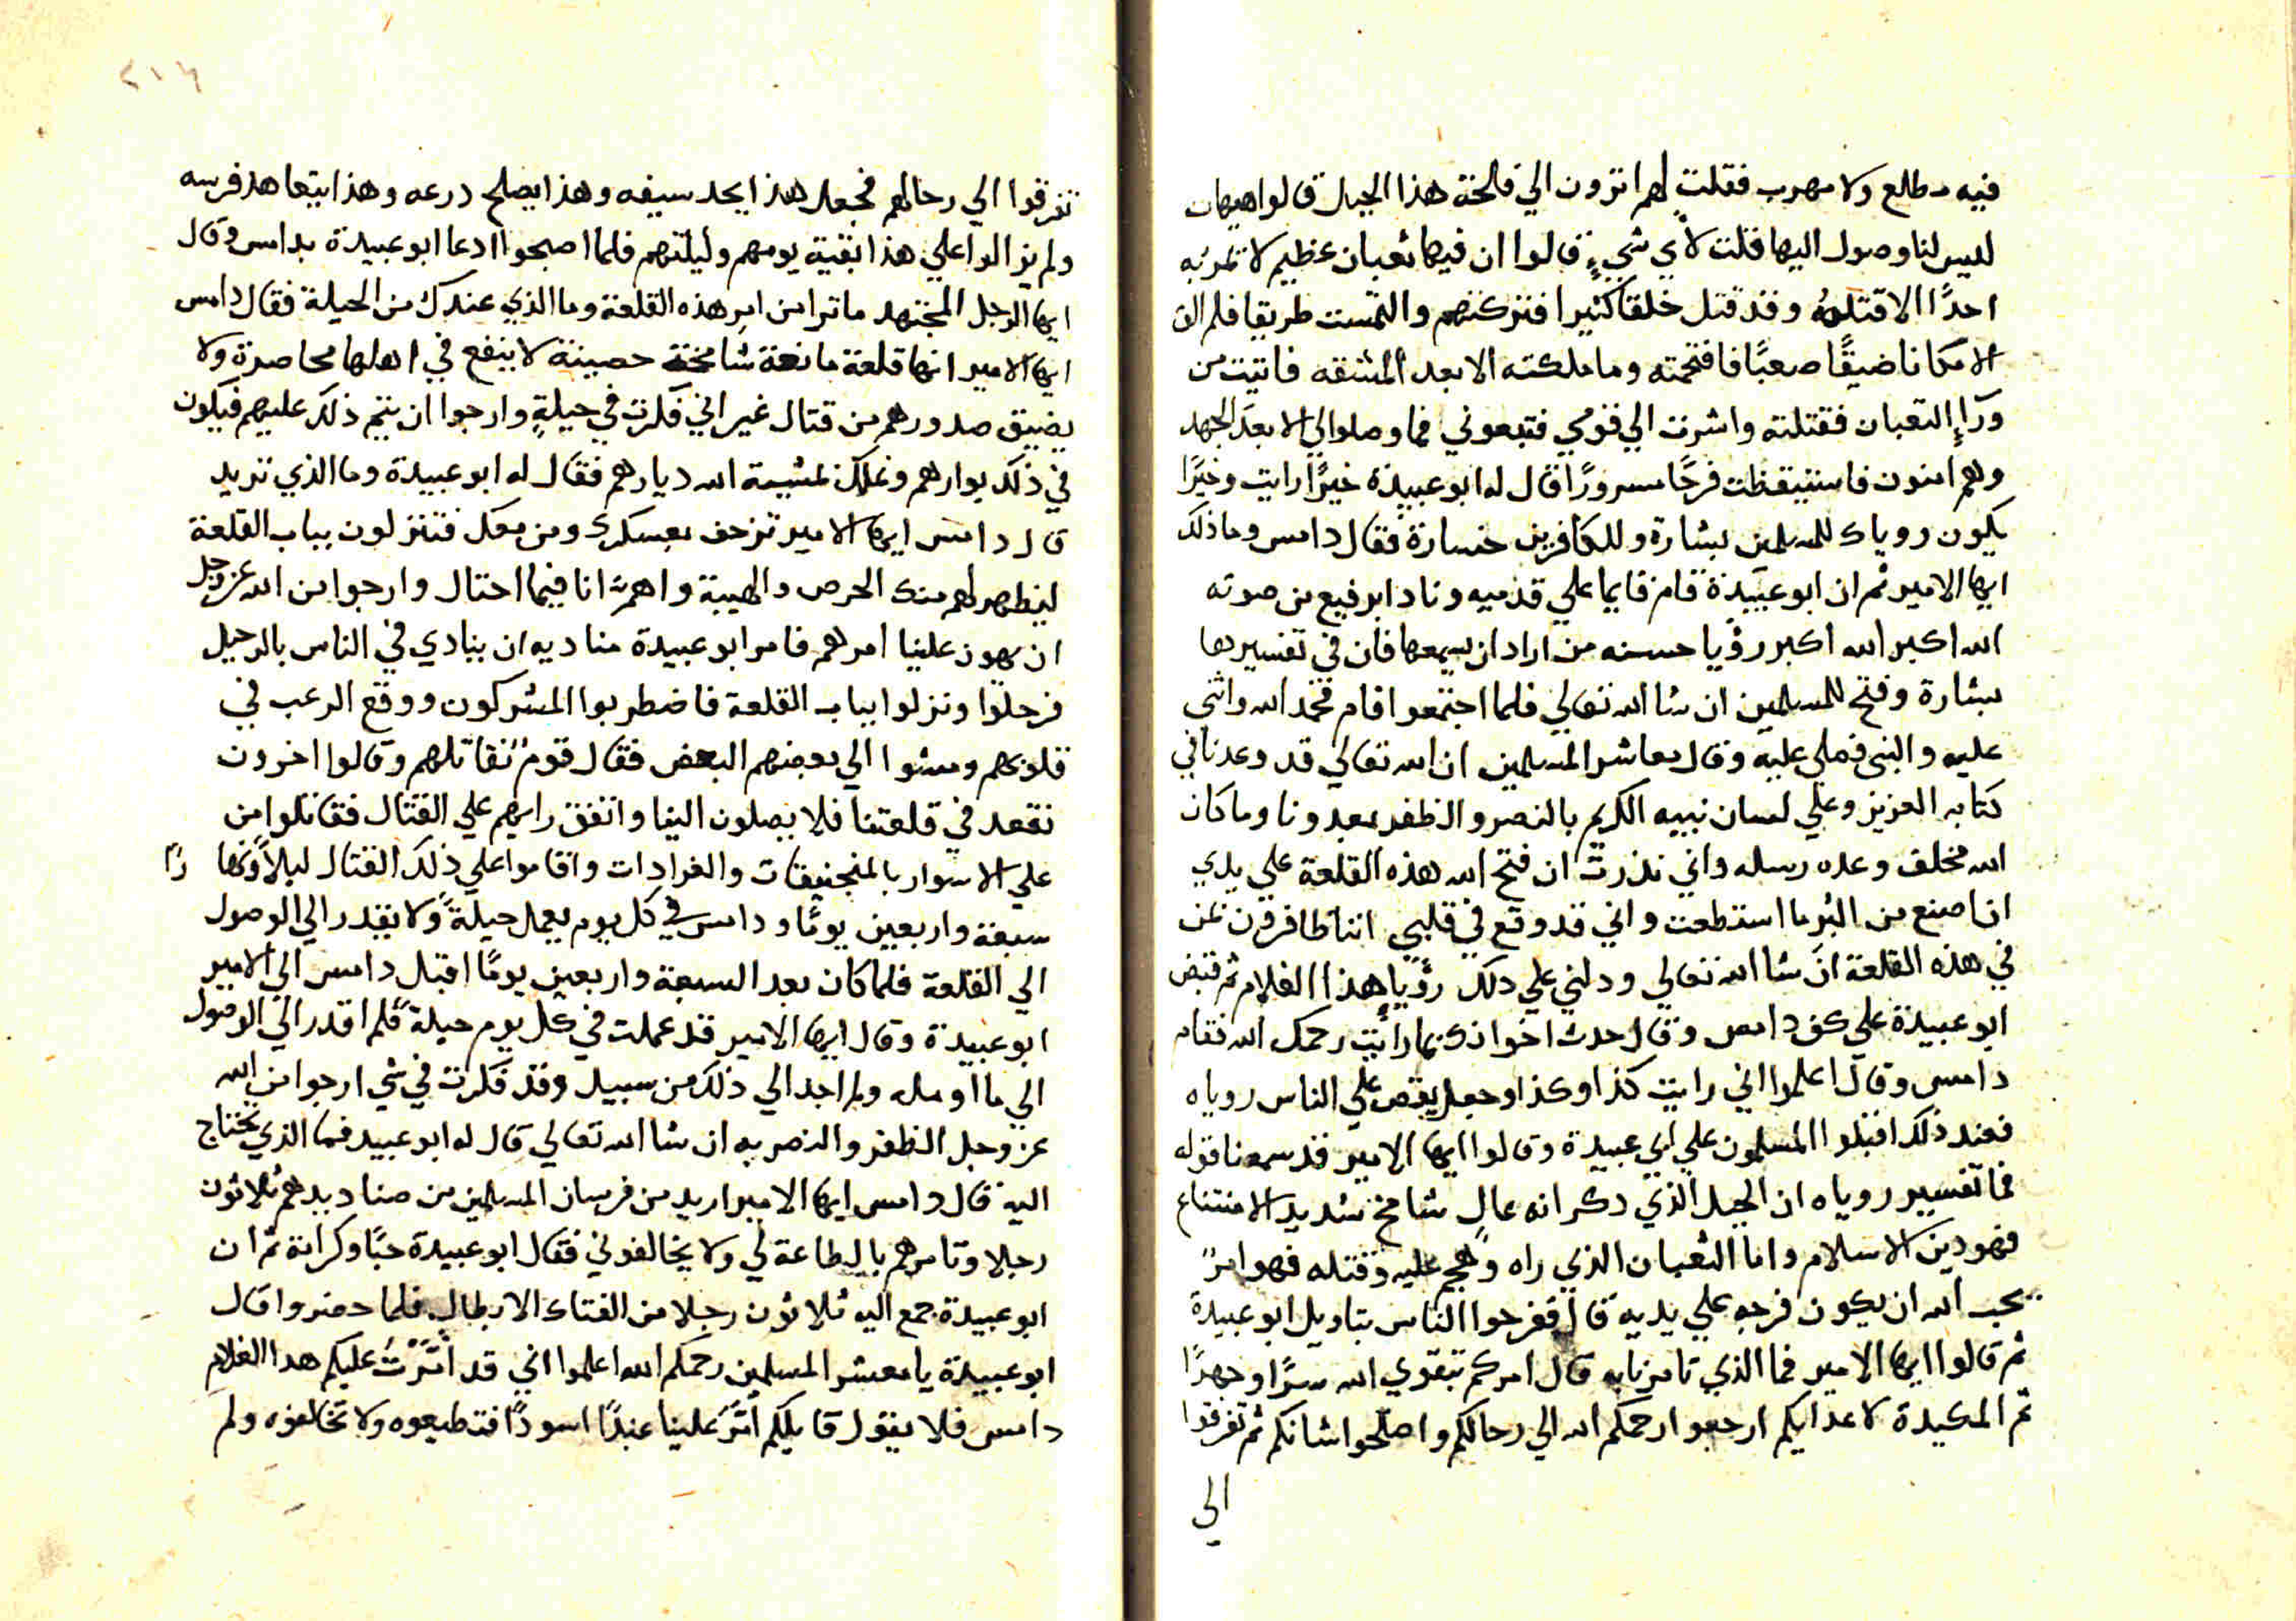 فيه مطلع ولا مهرب فقلت لهم اترون الي فالحة هذا الجبل قالوا هيهات
ليس لنا وصول اليها قلت لأي شيءٍ قالوا ان فيها ثعبان عظيم لا تمر به
احدًا الا قتلهُ وقد قتل خلقا كثيرا فتركتهم والتمست طريقا فلم الق
الا مكانا ضيقًا صعبًا فاقتحمته وما ملكته الا بعد المشقه فاتيت من
ورآءِ الثعبان فقتلته واشرت الي قومي فتبعوني فما وصلوا الي الا بعد الجهد
وهم امنون فاستيقظت فرحًا مسرورًا قال له ابو عبيدة خيرًا رايت وخيرًا
يكون روياك للمسلمين بشارة وللكافرين خسارة فقال دامس وما ذلك
ايها الامير ثم ان ابو عبيدة قام قايما علي قدميه ونادا برفيع من صوته
الله اكبر الله اكبر رؤيا حسنه من اراد ان يسمعها فان في تفسيرها
بشارة وفتح للمسلمين ان شا الله تعالي فلما اجتمعوا قام فحمد الله واثني
عليه والنبي فصلي عليه وقال معاشر المسلمين ان الله تعالي قد وعدنا في
كتابه العزيز وعلي لسان نبيه الكريم بالنصر والظفر بعدونا وما كان
الله مخلف وعده رسله واني نذرت ان فتح الله هذه القلعة علي يدي
ان اصنع من البر ما استطعت واني قد وقع في قلبي اننا ظافرون بمن
في هذه القلعة ان شا الله تعالي ودلني علي ذلك رؤيا هذا الغلام ثم قبض
ابو عبيدة علي كف دامس وقال حدث اخوانك بما رايت رحمك الله فقام
دامس وقال اعلموا اني رايت كذا وكذا وجعل يقص علي الناس روياه
فعند ذلك اقبلوا المسلمون علي ابي عبيدة وقالوا ايها الامير قد سمعنا قوله
فما تفسير روياه ان الجبل الذي دكر انه عالٍ شامخ شديد الامتناع
فهو دين الاسلام واما الثعبان الذي راه وهجم عليه وقتله فهو امرٌ
يحب الله ان يكون فرجه علي يديه قال ففرحوا الناس بتاويل ابو عبيدة
ثم قالوا ايها الامير فما الذي تامرنا به قال امركم بتقوي الله سرًا وجهرًا
ثم المكيدة لاعدايكم ارجعوا رحمكم الله الي رحالكم واصلحوا شانكم ثم تفرقوا
الي
٢١٦
تفرقوا الي رحالهم فجعل هذا يحد سيفه وهذا يصلح درعه وهذا يتعاهد فرسه
ولم يزالوا علي هذا بقية يومهم وليلتهم فلما اصبحوا ادعا ابو عبيدة بدامس وقال
ايها الرجل المجتهد ما ترا من امر هذه القلعة وما الذي عندك من الحيلة فقال دامس
ايها الامير انها قلعة مانعة شامخة حصينة لا ينفع في اهلها محاصرة ولا
يضيق صدورهم من قتال غير اني فكرت في حيلةٍ وارجوا ان يتم ذلك عليهم فيكون
في ذلك بوارهم ونملك بمشيية الله ديارهم فقال له ابو عبيدة وما الذي تريد
قال دامس ايها الامير تزحف بعسكرك ومن معك فتنزلون بباب القلعة
ليظهر لهم منك الحرص والهيبة واهمّ انا فيما احتال وارجوا من الله عز وجل
ان يهون علينا امرهم فامر ابو عبيدة مناديه ان ينادي في الناس بالرحيل
فرحلوا ونزلوا بباب القلعة فاضطربوا المشركون ووقع الرعب في
قلوبهم ومشوا الي بعضهم البعض فقال قوم نقاتلهم وقالوا اخرون
نقعد في قلعتنا فلا يصلون الينا واتفق رايهم علي القتال فقاتلوا من
علي الاسوار بالمنجنيقات والغرادات واقاموا علي ذلك القتال ليلاً ونهارًا
سبعة واربعين يومًا ودامس في كل يوم يعمل حيلةً ولا يقدر الي الوصول
الي القلعة فلما كان بعد السبعة واربعين يومًا اقبل دامس الي الامير
ابو عبيدة وقال ايها الامير قد عملت في كل يوم حيلة فلم اقدر الي الوصول
الي ما اومله ولم اجد الي ذلك من سبيل وقد فكرت في شي ارجوا من الله
عز وجل الظفر والنصر به ان شا الله تعالي قال له ابو عبيد فما الذي تحتاج
اليه قال دامس ايها الامير اريد من فرسان المسلمين من صناديدهم ثلاثون
رجلا وتامرهم بالطاعة لي ولا يخالفوني فقال ابو عبيدة حبًا وكرامة ثم ان
ابو عبيدة جمع اليه ثلاثون رجلا من الفتاك الابطال فلما حضروا قال
ابو عبيدة يا معشر المسلمين رحمكم الله اعلموا اني قد أمّرتُ عليكم هدا الغلام
دامس فلا يقول قايلكم أمّر علينا عبدًا اسودًا فتطيعوه ولا تخالفوه ولم